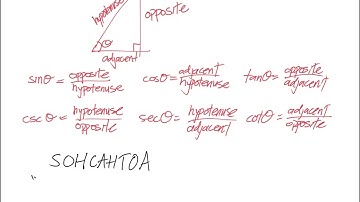 hypotenuse
opposite
θ
adjacent
sinθ = opposite/hypotenuse cosθ = adjacent/hypotenuse tanθ = opposite/adjacent
cscθ = hypotenuse/opposite secθ = hypotenuse/adjacent cotθ = adjacent/opposite
SOHCAHTOA